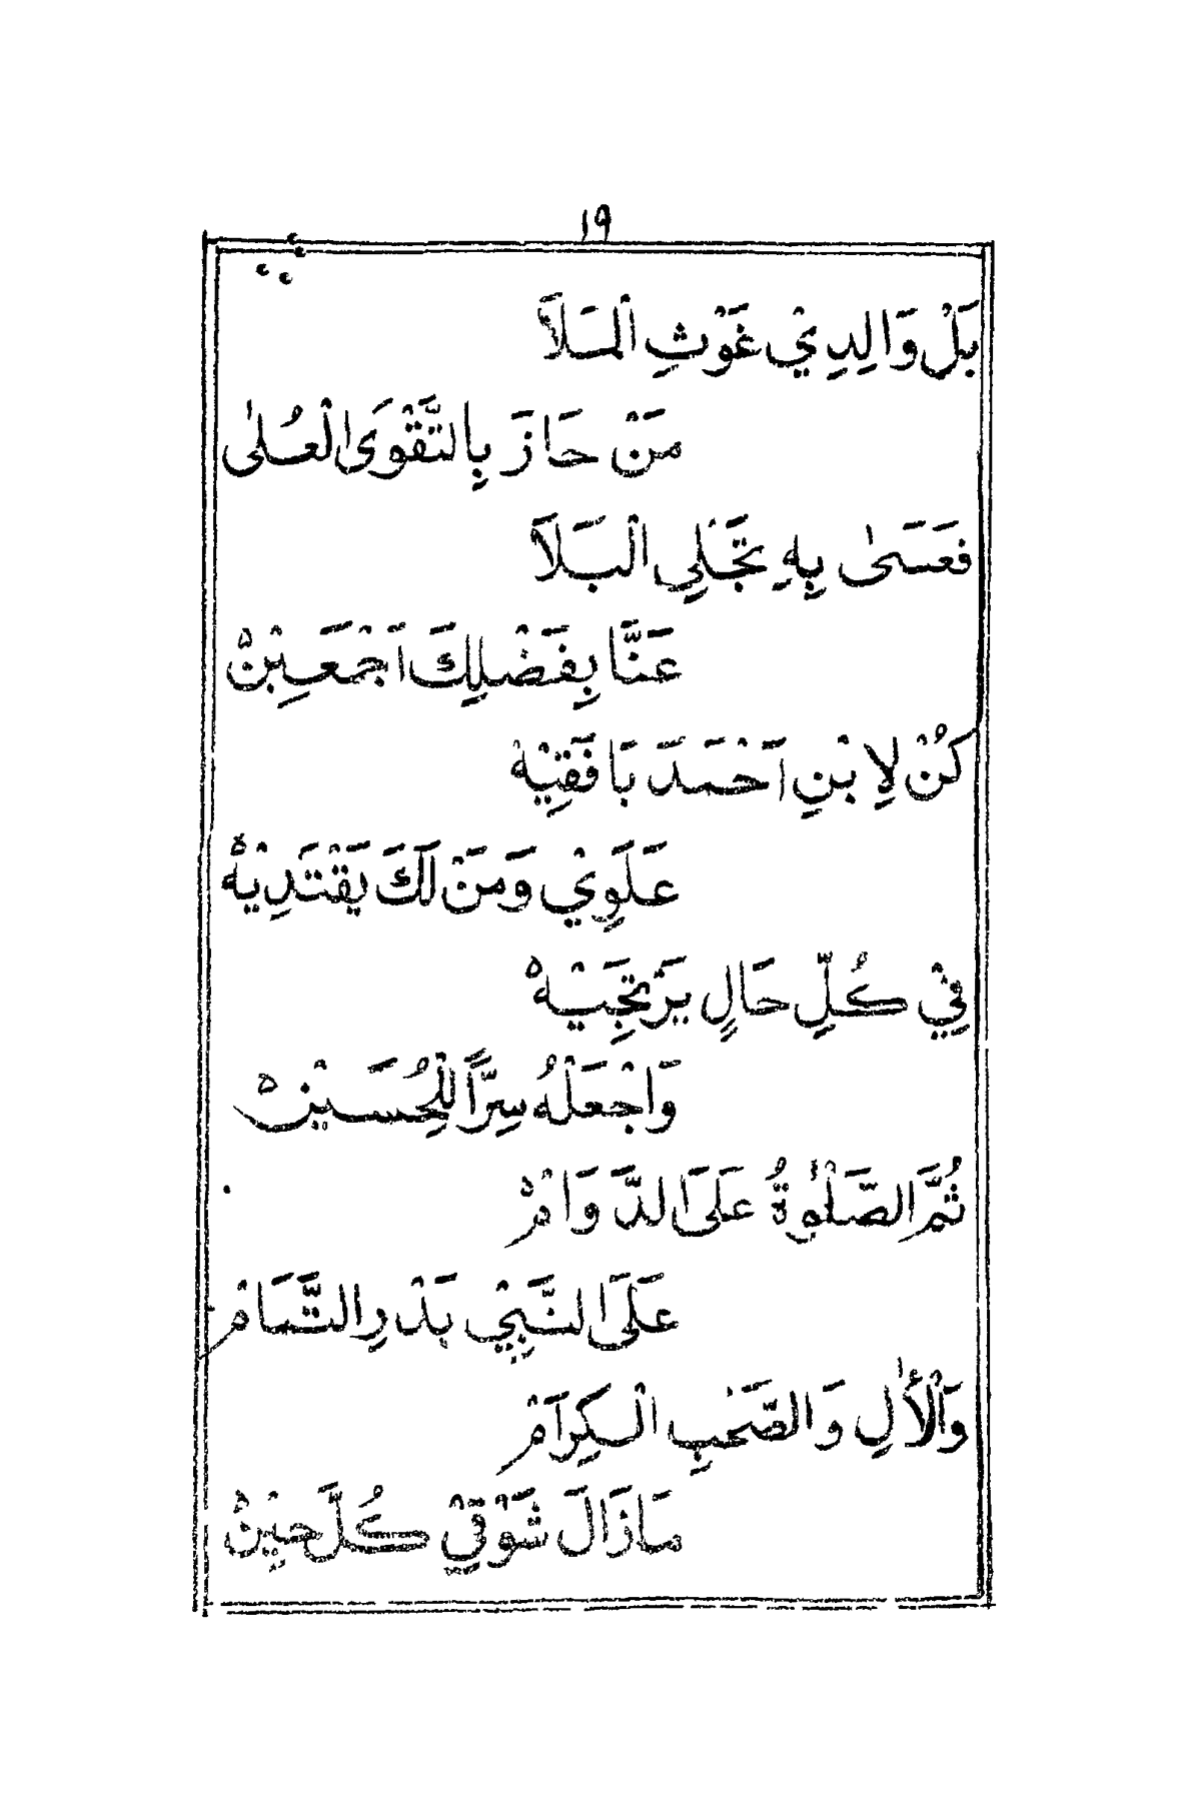 ١٩
بَلْ وَالِدِيْ غَوْثِ الْمَلَآ
مَنْ حَازَ بِالتَّقْوَى الْعُلىٰ
فَعَسَىٰ بِهِ تَجَْلِي الْبَلَآ
عَنَّا بِفَضْلِكَ اَجْمَعِيْنْ
كُنْ لِابْنِ اَحْمَدَ بَافَقِيْهْ
عَلَوِيْ وَمَنْ لَكَ يَقْتَدِيْهْ
فِيْ كُلِّ حَالٍ يَرْتَجِيْهْ
وَاجْعَلْهُ سِرًّا لِلْحُسَيْنْ
ثُمَّ الصَّلٰوةُ عَلَى الدَّوَامْ
عَلَى النَّبِيْ بَدْرِ التَّمَامْ
وَالْأٰلِ وَالصَّحْبِ الْكِرَامْ
مَازَالَ شَوْقِيْ كُلَّ حِيْنْ